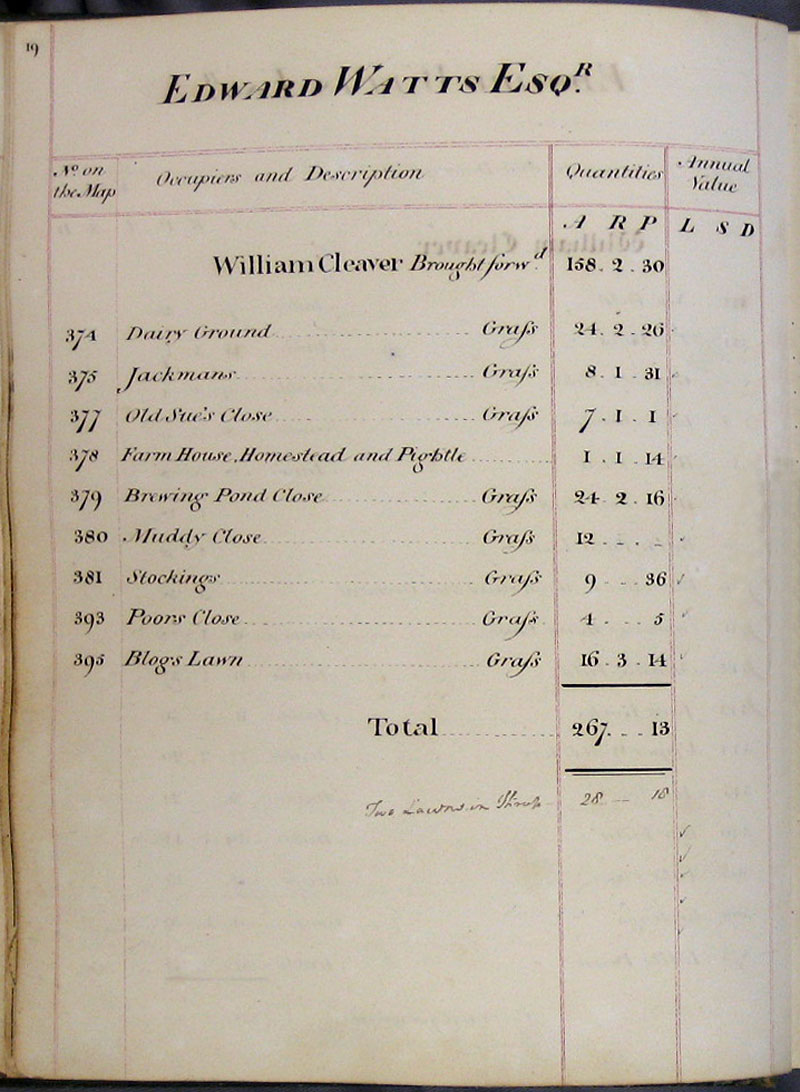 19
EDWARD WATTS ESQ.R
No on the Map Occupiers and Description Quantities Annual Value
A R P L S D
William Cleaver Brought forwd. 158 . 2 . 30
374 Dairy Ground Graſs 24 . 2 . 26
375 Jackmans Graſs 8 . 1 . 31
377 Old Sue's Close Graſs 7 . 1 . 1
378 Farm House, Homestead and Pightle 1 . 1 . 14
379 Brewing Pond Close Graſs 24 . 2 . 16
380 Muddy Close Graſs 12 . _ . _
381 Stockings Graſs 9 _ _ 36
393 Poors Close Graſs 4 . _ . 5
395 Blogs Lawn Graſs 16 . 3 . 14
Total 267 . _ _ 13
Two Lawns in 28 — 18